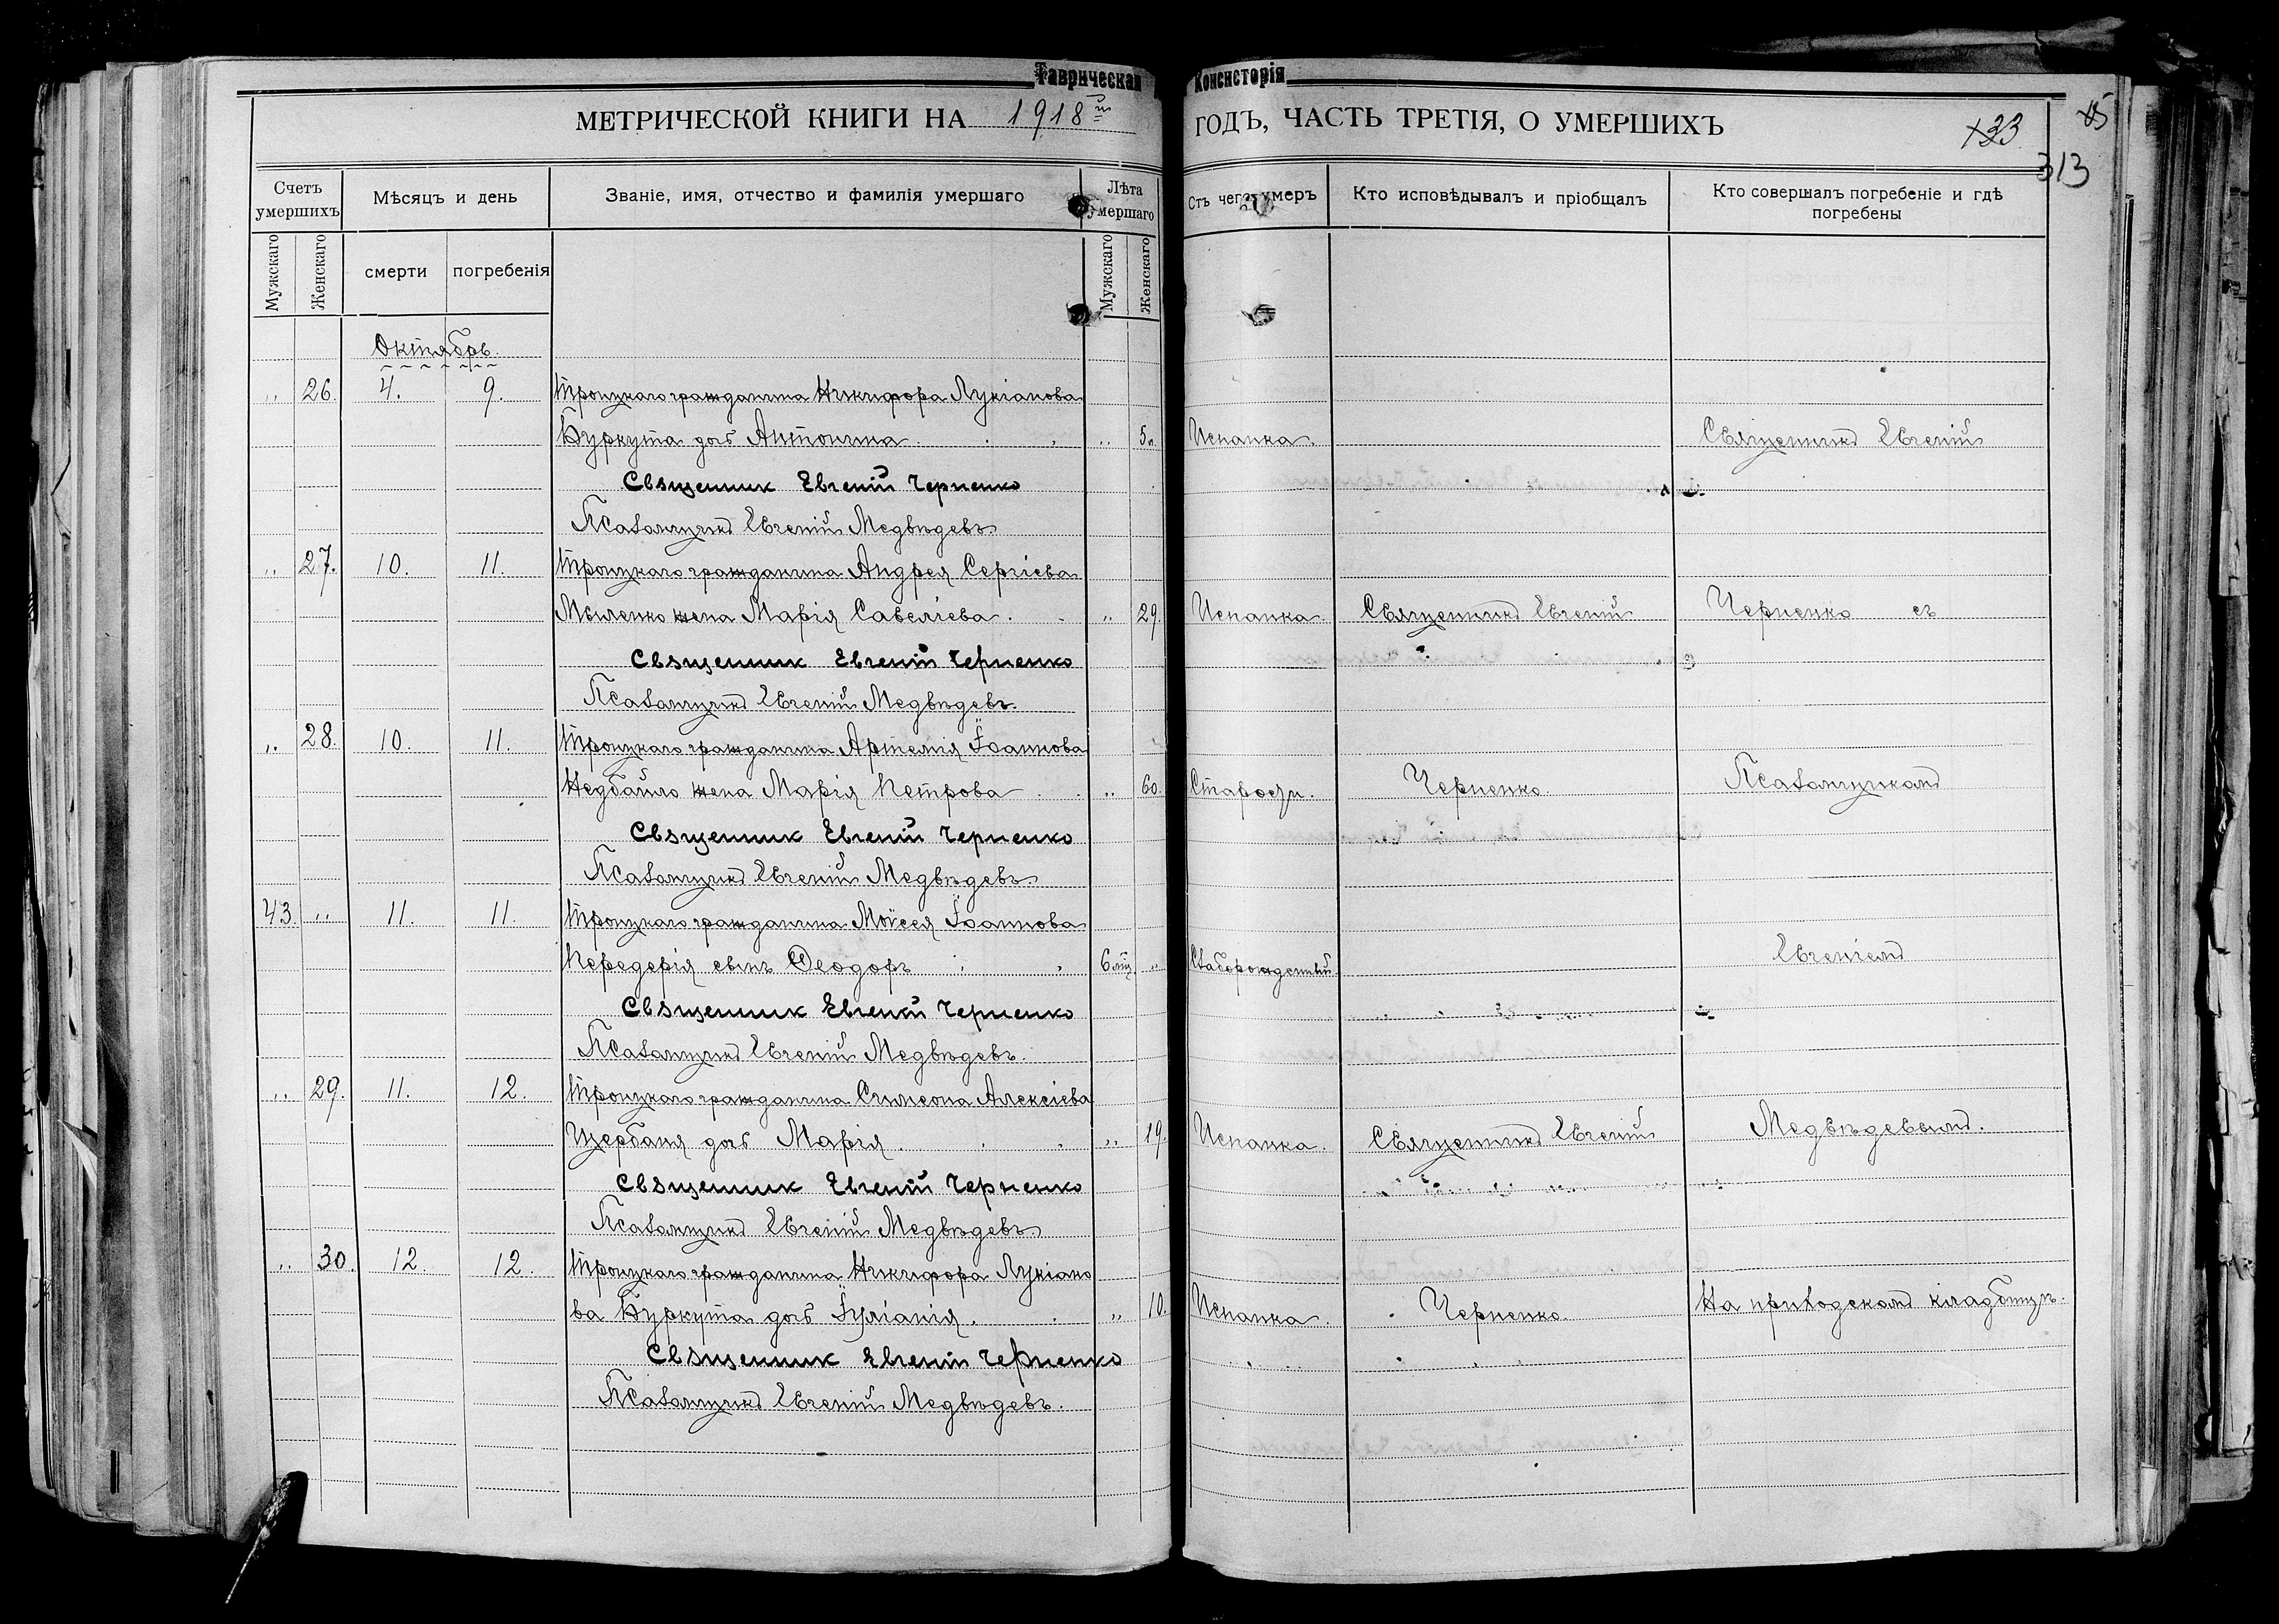 Таврическая Консисторія
МЕТРИЧЕСКОЙ КНИГИ НА 1918й
ГОДЪ, ЧАСТЬ ТРЕТІЯ, О УМЕРШИХЪ
133
313
Счетъ умершихъ
Мѣсяцъ и день
Званіе, имя, отчество и фамилія умершаго
Лѣта умершаго
Отъ чего умеръ
Кто исповѣдывалъ и пріобщалъ
Кто совершалъ погребеніе и гдѣ
погребены
Мужскаго
Женскаго
смерти
погребенія
Мужскаго
Женскаго
Октябрь.
„ 26. 4. 9. Троицкаго гражданина Никифора Лукіанова
Буркута дочь Антонина. „ 5л. Испанка. Священникъ Евгеній
Священник Евгеній Черненко
Псаломщикъ Евгеній Медвѣдевъ.
„ 27. 10. 11. Троицкаго гражданина Андрея Сергіева
Мыленко жена Марія Савеліева. „ 29. Испанка. Священникъ Евгеній Черненко съ
Священник Евгеній Черненко
Псаломщикъ Евгеній Медвѣдевъ.
„ 28. 10. 11. Троицкаго гражданина Артемія Іоаннова
Недбайло жена Марія Петрова „ 60. Старости. Черненко. Псаломщикомъ
Священник Евгеній Черненко
Псаломщикъ Евгеній Медвѣдевъ.
43. „ 11. 11. Троицкаго гражданина Моисея Іоаннова
Передерія сынъ Ѳеодоръ 6 мц. „ Слаборожденный Евгеніемъ
Священник Евгеній Черненко
Псаломщикъ Евгеній Медвѣдевъ.
„ 29. 11. 12. Троицкаго гражданина Симеона Алексіева
Щербаня дочь Марія. „ 19. Испанка. Священникъ Евгеній Медвѣдевымъ.
Священник Евгеній Черненко
Псаломщикъ Евгеній Медвѣдевъ.
„ 30. 12. 12. Троицкаго гражданина Никифора Лукіано
ва Буркута дочь Іуліанія. „ 10. Испанка. Черненко. На приходскомъ кладбищѣ.
Священник Евгеній Черненко
Псаломщикъ Евгеній Медвѣдевъ.